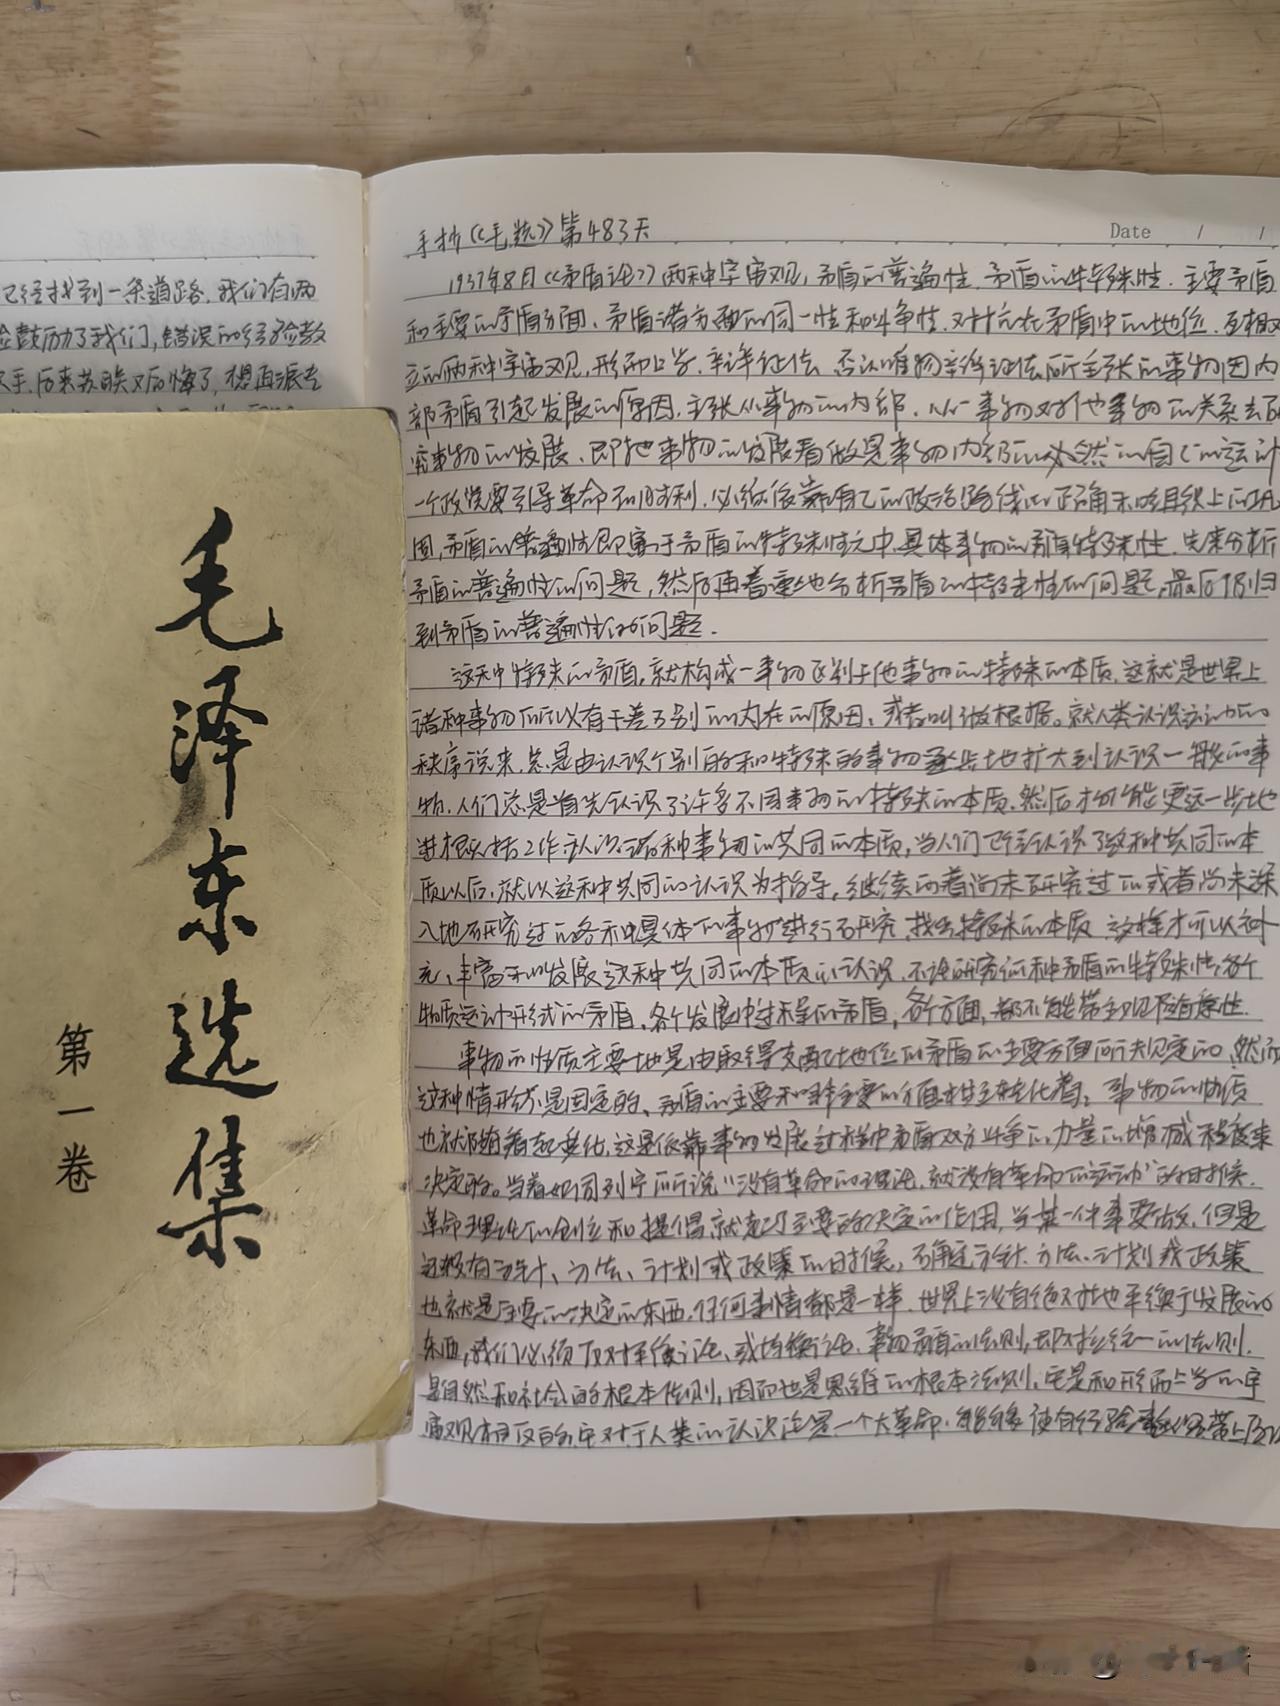 已经找到一条道路。我们有两
鼓励了我们,错误的经验教
手,后来苏联又后悔了,想再派去
毛泽东选集
第一卷
Date / /
手抄《毛选》第483天
1937年8月《矛盾论》两种宇宙观,矛盾的普遍性.矛盾的特殊性.主要矛盾
和主要的矛盾方面、矛盾诸方面的同一性和斗争性.对抗在矛盾中的地位.互相对
立的两种宇宙观,形而上学,辩证法 否认唯物辩证法所主张的事物因内
部矛盾引起发展的原因,主张从事物的内部.从一事物对他事物的关系去研
究事物的发展、即把事物的发展看做是事物内部的必然的自己的运动
一个政党要引导革命到胜利,必须依靠自己的政治路线的正确和组织上的巩
固,矛盾的普遍性即寓于矛盾的特殊性之中.具体事物的特殊性,先来分析
矛盾的普遍性的问题,然后再着重地分析矛盾的特殊性的问题,最后仍归
到矛盾的普遍性的问题.
这种特殊的矛盾,就构成一事物区别于他事物的特殊的本质.这就是世界上
诸种事物所以有千差万别的内在的原因,或者叫做根据。就人类认识运动的
秩序说来,总是由认识个别的和特殊的事物逐步地扩大到认识一般的事
物.人们总是首先认识了许多不同事物的特殊的本质.然后才有可能更进一步地
进行概括工作认识诸种事物的共同的本质,当人们已经认识了这种共同的本
质以后,就以这种共同的认识为指导,继续向着尚未研究过的或者尚未深
入地研究过的各种具体的事物进行研究,找出特殊的本质 这样才可以补
充、丰富和发展这种共同的本质的认识.不论研究何种矛盾的特殊性,各个
物质运动形式的矛盾,各个发展过程的矛盾,各个方面,都不能带主观随意性.
事物的性质主要地是由取得支配地位的矛盾的主要方面所规定的,然而
这种情形不是固定的、矛盾的主要和非主要的方面互相转化着,事物的性质
也就随着起变化,这是依靠事物发展过程中矛盾双方斗争的力量的增减程度来
决定的。当着如同列宁所说"没有革命的理论,就没有革命的运动"的时候.
革命理论的创立和提倡就起了主要的决定的作用,当某一件事要做,但是
还没有方针、方法、计划或政策的时候,确定方针.方法.计划或政策
也就是主要的决定的东西.任何事情都是一样.世界上没有绝对地平衡发展的
东西,我们必须反对平衡论,或均衡论.事物矛盾的法则,即对立统一的法则.
是自然和社会的根本法则,因而也是思维的根本法则,它是和形而上学的宇
宙观相反的,它对于人类的认识论是一个大革命.